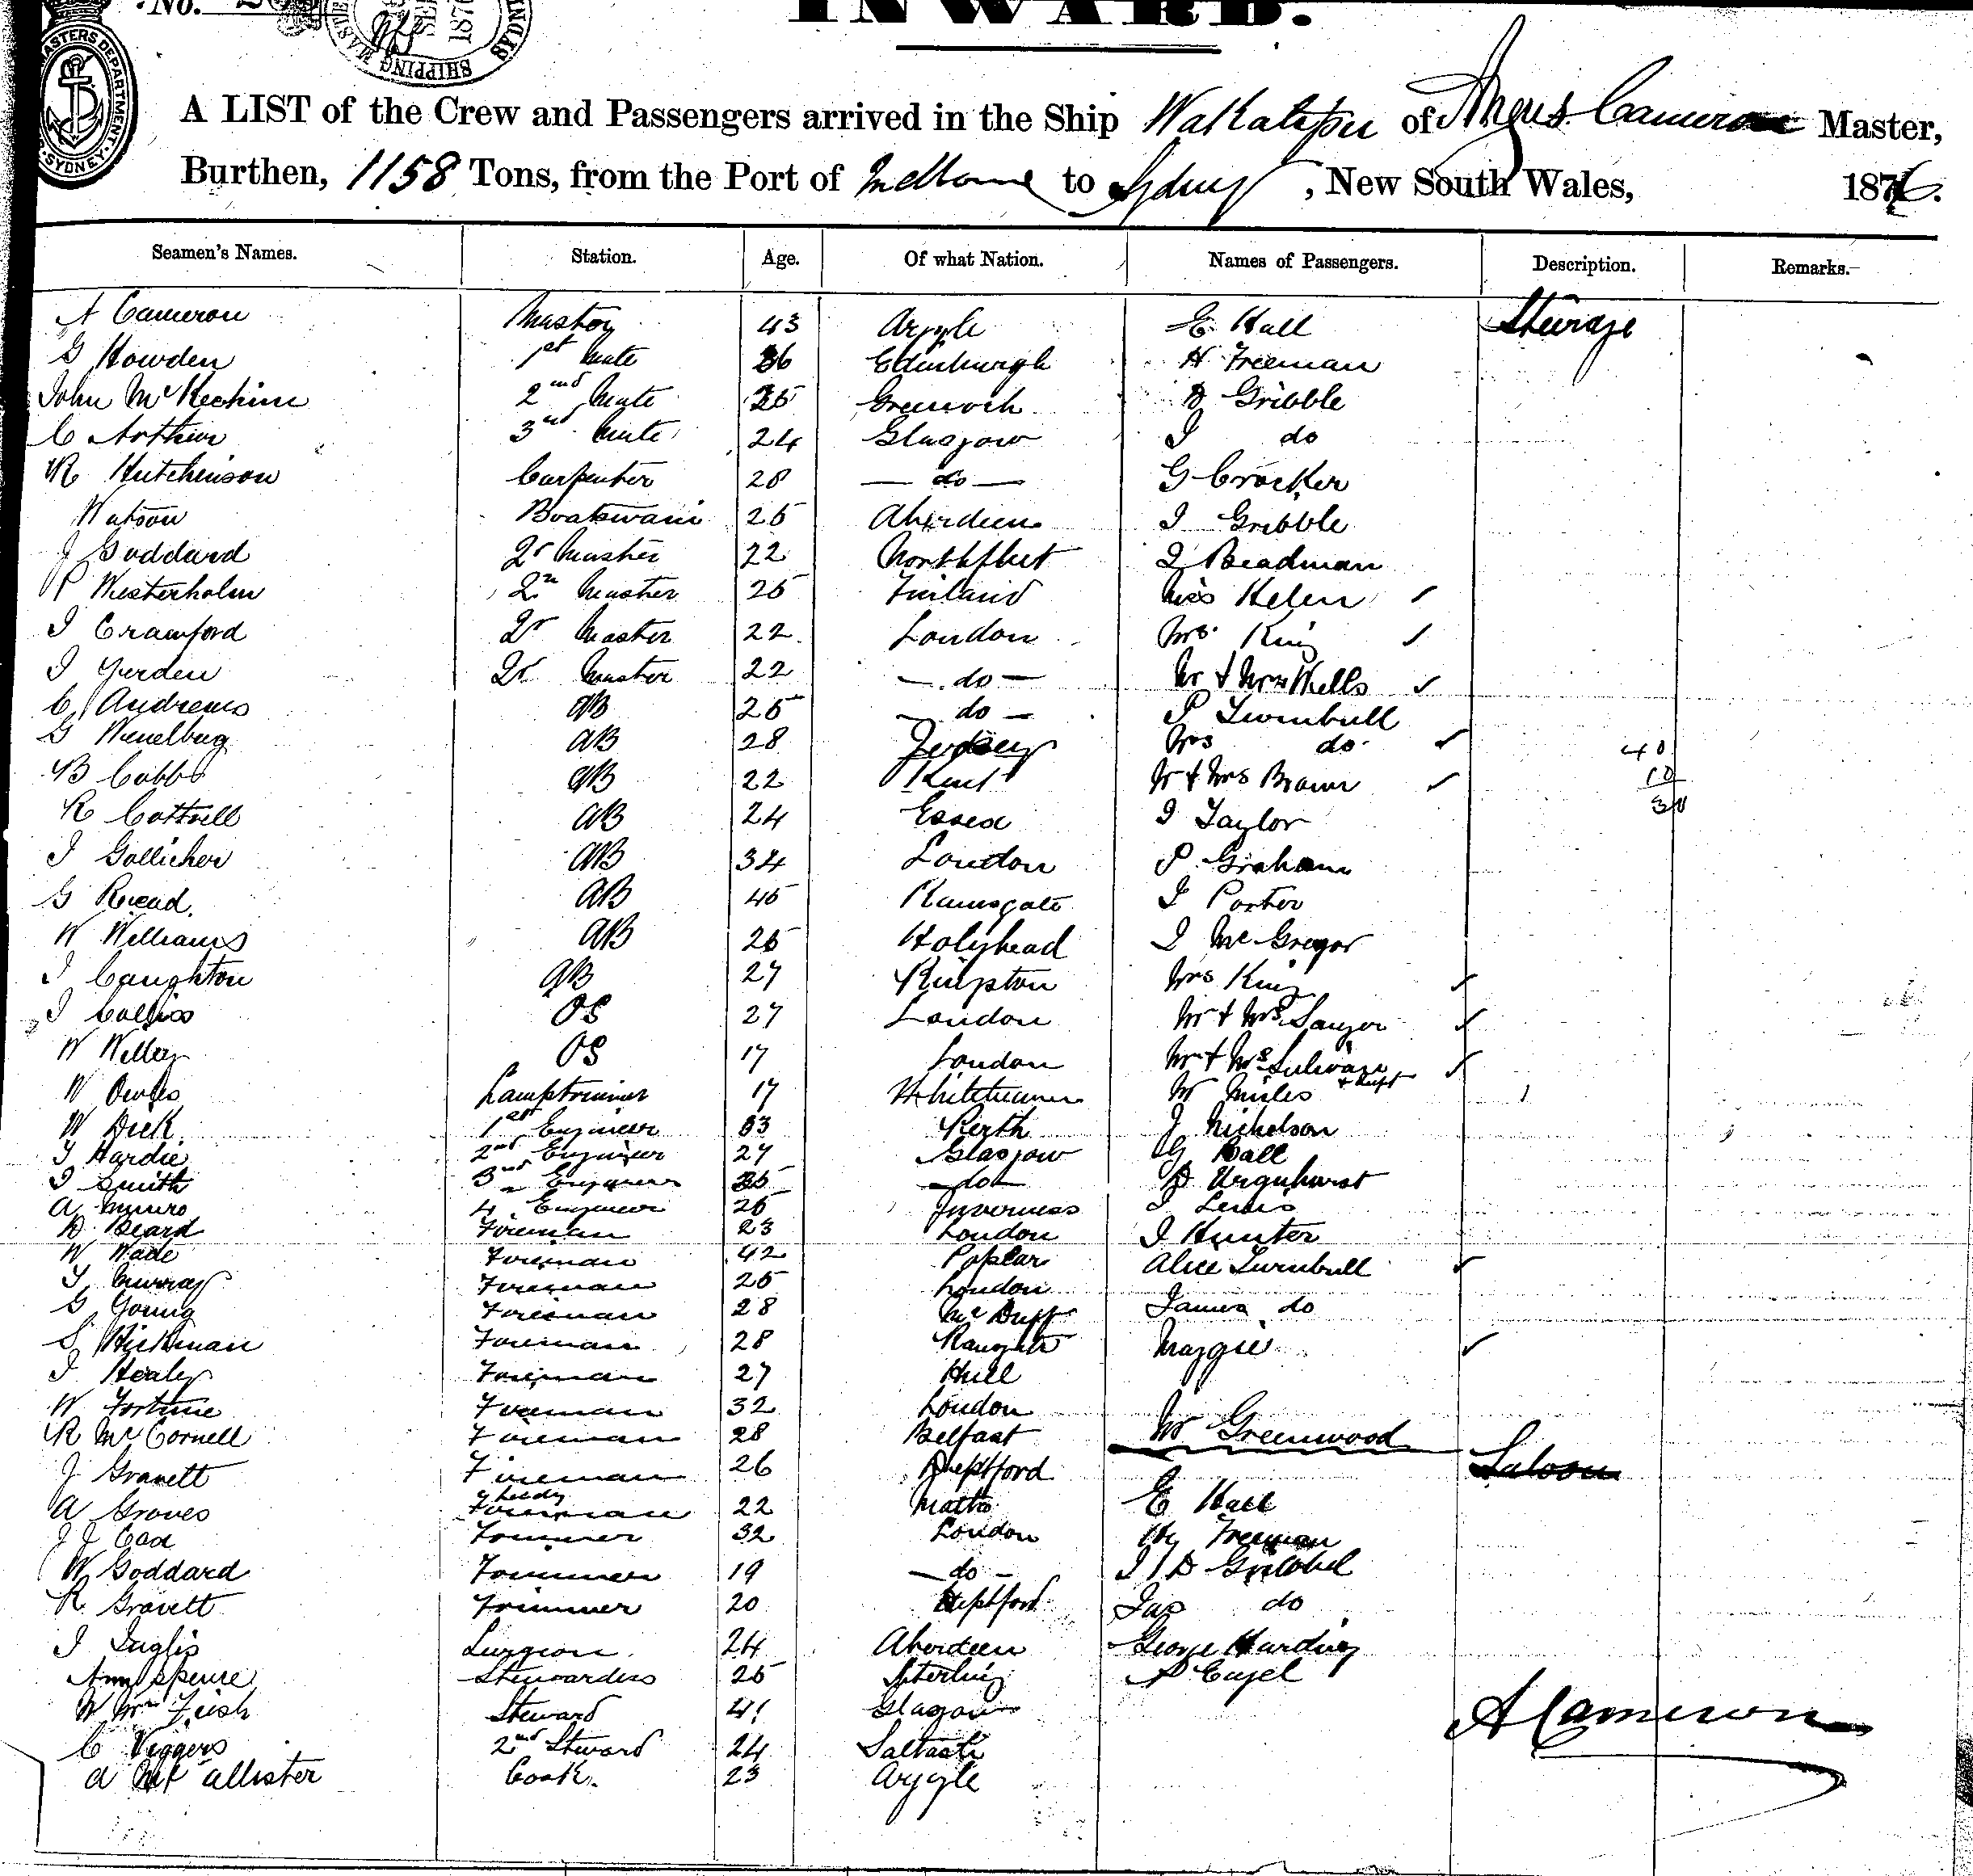 No.
INWARD.
MASTERS DEPARTMENT SYDNEY
SHIPPING MASTE
A LIST of the Crew and Passengers arrived in the Ship Wakatipu of Angus Cameron Master,
Burthen, 1158 Tons, from the Port of Melbourne to Sydney, New South Wales, 1876.
Seamen's Names. Station. Age. Of what Nation. Names of Passengers. Description. Remarks.
A Cameron Master 43 Argyle E Hall Steerage
G Howden 1st Mate 36 Edinburgh H Freeman
John McKechine 2nd Mate 25 Greenock D Gribble
C Arthur 3rd Mate 24 Glasgow I do
R Hutchinson Carpenter 28 — do — G Crocker
Watson Boatswain 25 Aberdeen I Gribble
J Goddard Qr Master 22 Northfleet I Beadman
P Westerholm Qr Master 25 Finland Miss Helen ✓
I Crawford Qr Master 22 London Mrs King ✓
I Yerden Qr Master 22 — do — Mr & Mrs Wells ✓
C Andrews AB 25 — do — P Turnbull
G AB 28 Jersey Mrs do ✓ 40
B Cobbs AB 22 Kent Mr & Mrs Brown ✓ 10
R Cottrell AB 24 Essex I Taylor 30
I Gollicher AB 34 London P Graham
G Read AB 45 Ramsgate I Porter
W Williams AB 25 Holyhead I McGregor
I Caughton AB 27 Kimpton Mrs King ✓
I Colliss OS 27 London Mr & Mrs Sawyer ✓
W Willey OS 17 London Mr & Mrs Sulivan ✓
W Lamptrimer 17 W Miles
W Dick 1st Engineer 33 Perth J Nicholson
T Hardie 2nd Engineer 27 Glasgow G Ball
I Smith 3rd Engineer 25 — do — D Urquhurst
A Munro 4 Engineer 25 Inverness I Lewis
D Beard Fireman 23 London I Hunter
W Wade Fireman 42 Poplar Alice Turnbull ✓
T Murray Fireman 25 London James do
G Young Fireman 28 McDuff Maggie ✓
S Hickman Fireman 28
I Healey Fireman 27 Hull
W Fortune Fireman 32 London Mr Greenwood
R McCornell Fireman 28 Belfast Saloon
J Gravett Fireman 26 Deptford
A Groves Fireman 22 E Hall
J J Cox Trimmer 32 London Hy Freeman
W Goddard Trimmer 19 — do — I D
R Gravett Trimmer 20 Deptford Jas do
I Inglis Surgeon 24 Aberdeen George Harding
Ann Spence Stewardess 25 Sterling P Engel
W Fish Steward 41 Glasgow
C Viggers 2nd Steward 24 Saltash
A McAllister Cook 23 Argyle
A Cameron